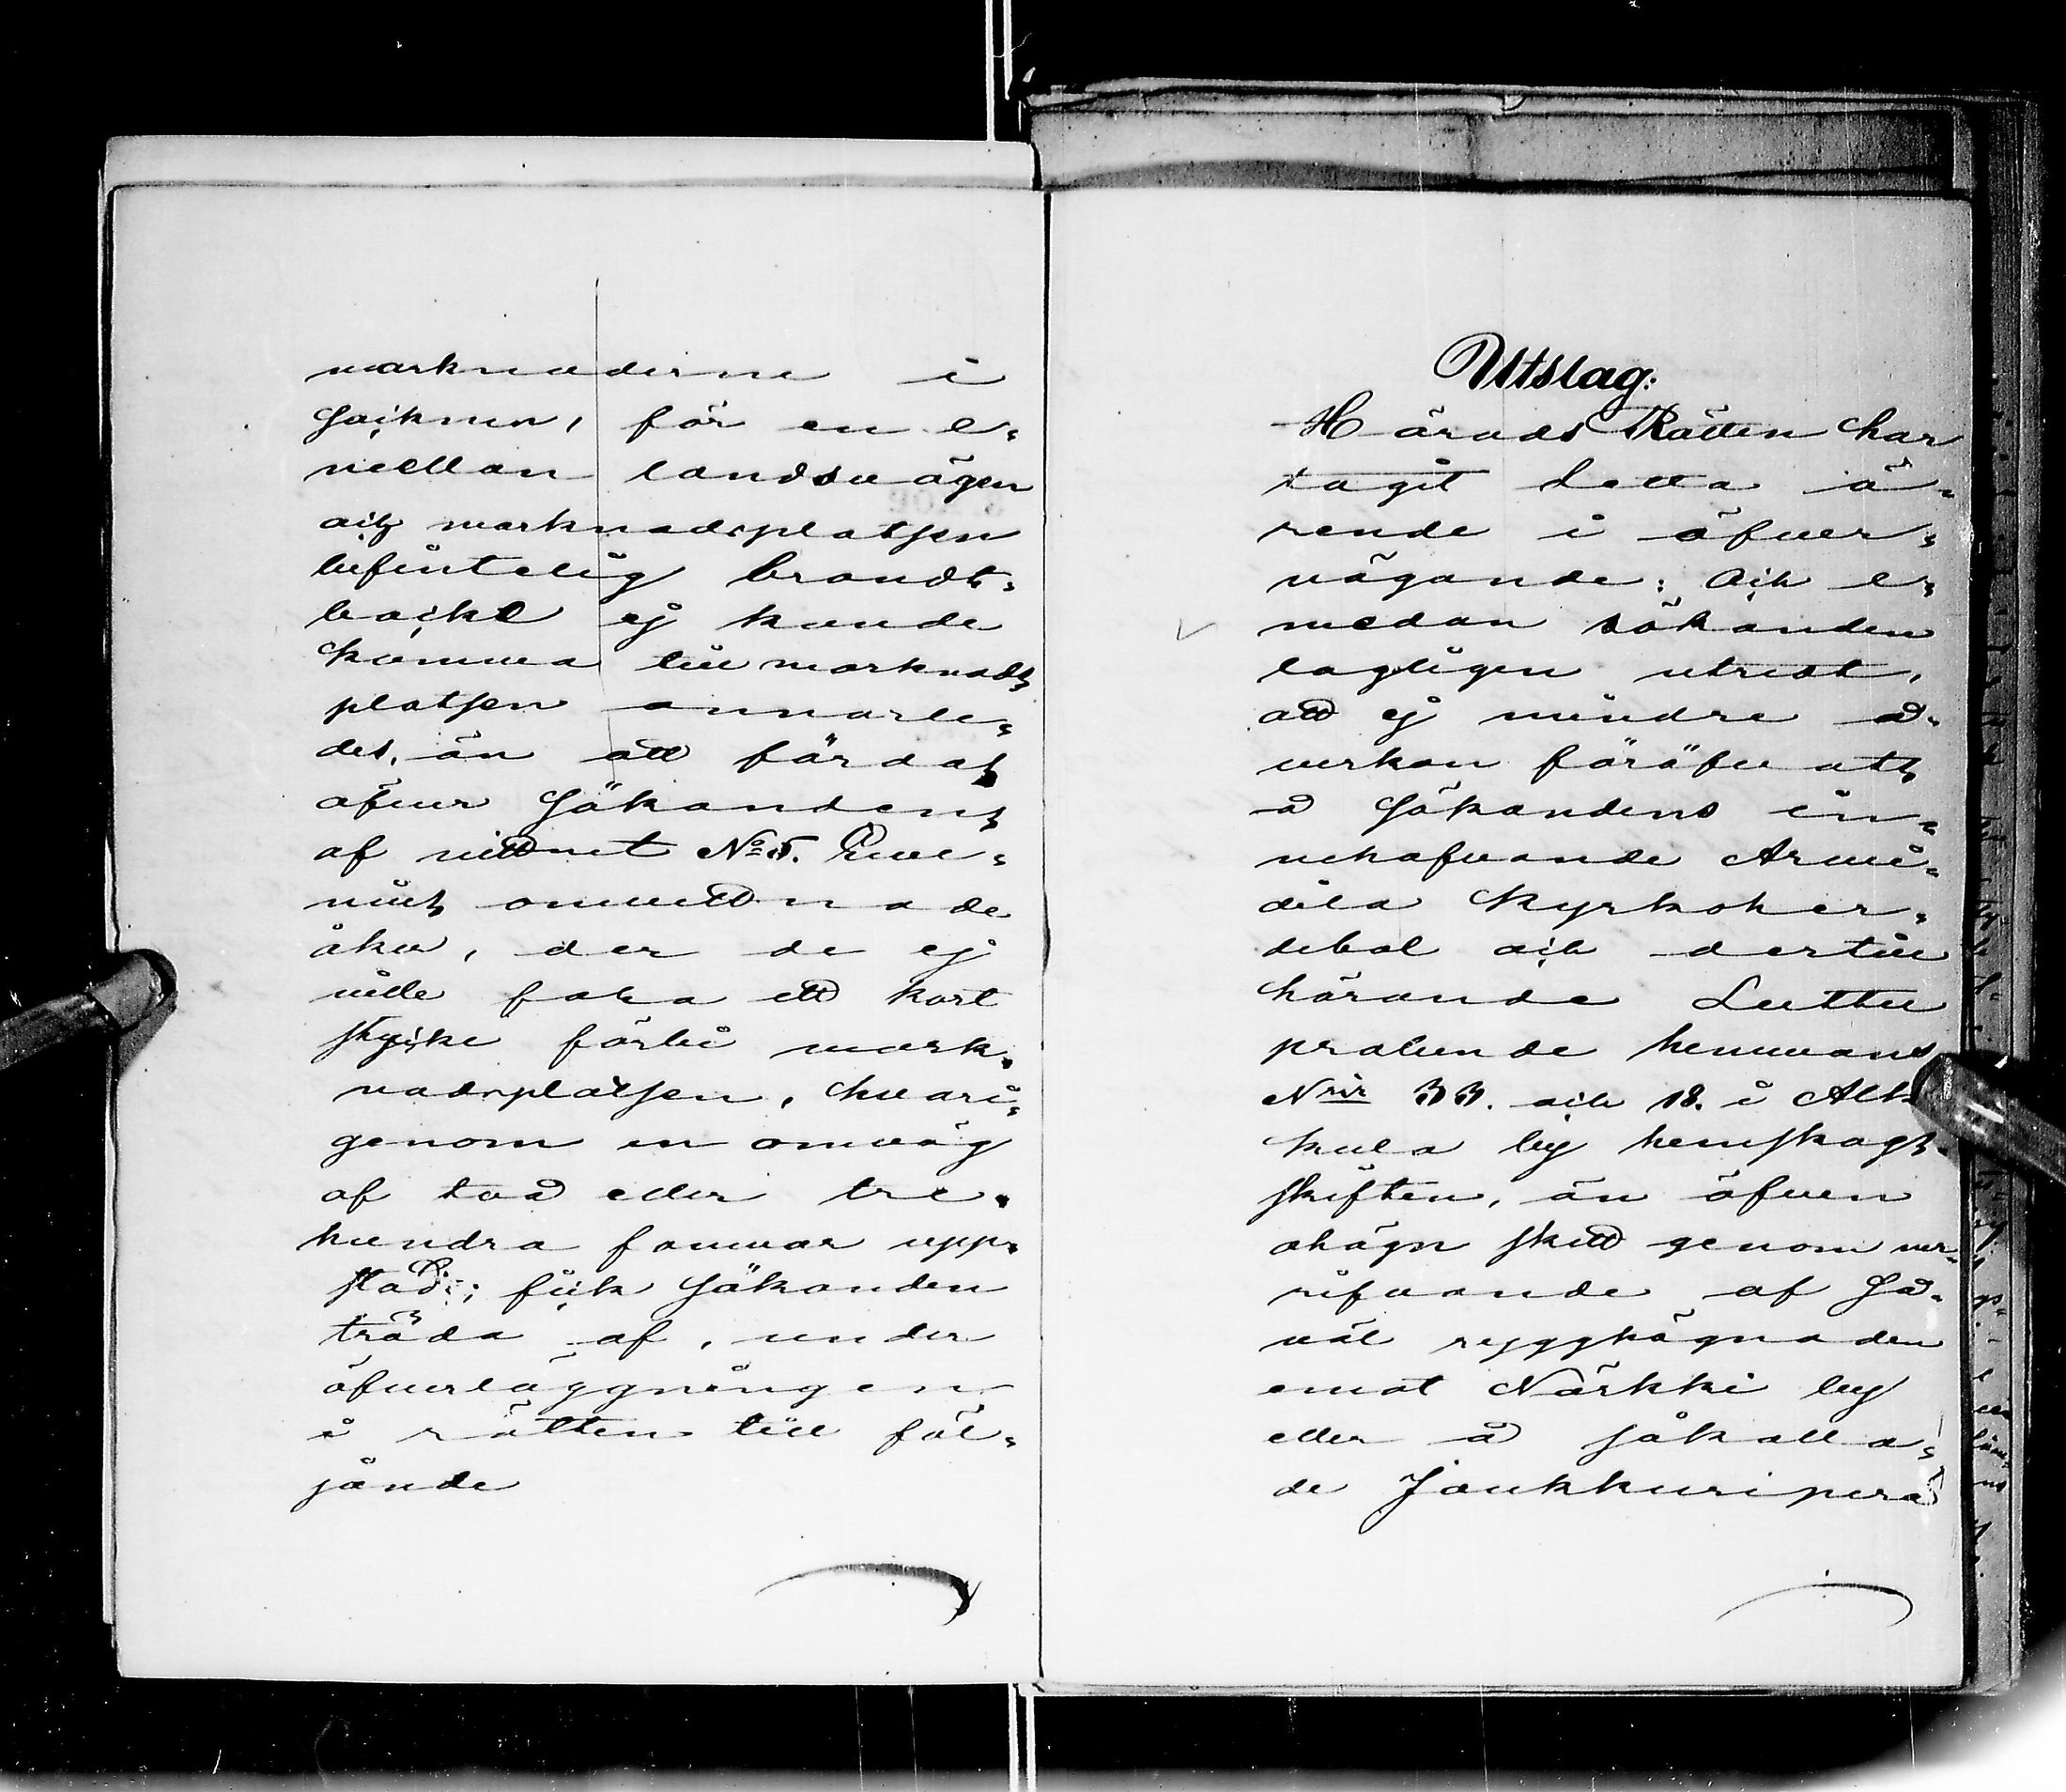 marknaderne i
Socknen, för en e-
mellan landsvägen
och marknadsplatsen
befintelig brandt-
backe ej kunde
komma till marknads
platsen annorle-
des, än att färdas
öfver Sökandens
af vittnet No 5.
omvittnade
åker, der de ej
ville fara ett kort
stycke förbi mark-
nadsplatsen, hvari-
genom en omväg
af två eller tre-
hundra famnar upp-
stod; fick Sökanden
träda af, under
öfverläggningen
i rätten till föl-
jande
Utslag:
Härads Rätten har
tagit detta ä-
rende i öfver-
vägande; Och e-
medan sökanden
lagligen utredt,
att ej mindre å-
verkan föröfvats
å Sökandens in-
nehafvande Armi-
dila Kyrkoher-
debol och dertill
hörande Luttu
præbende hemmans
Nrir 33. och 18. i Alk
kula by hemskogs-
skiften, än äfven
ohägn skett genom ner-
rifvande af så-
väl rygghägnaden
emot Närkki by
eller å såkalla-
de Joukkuripera